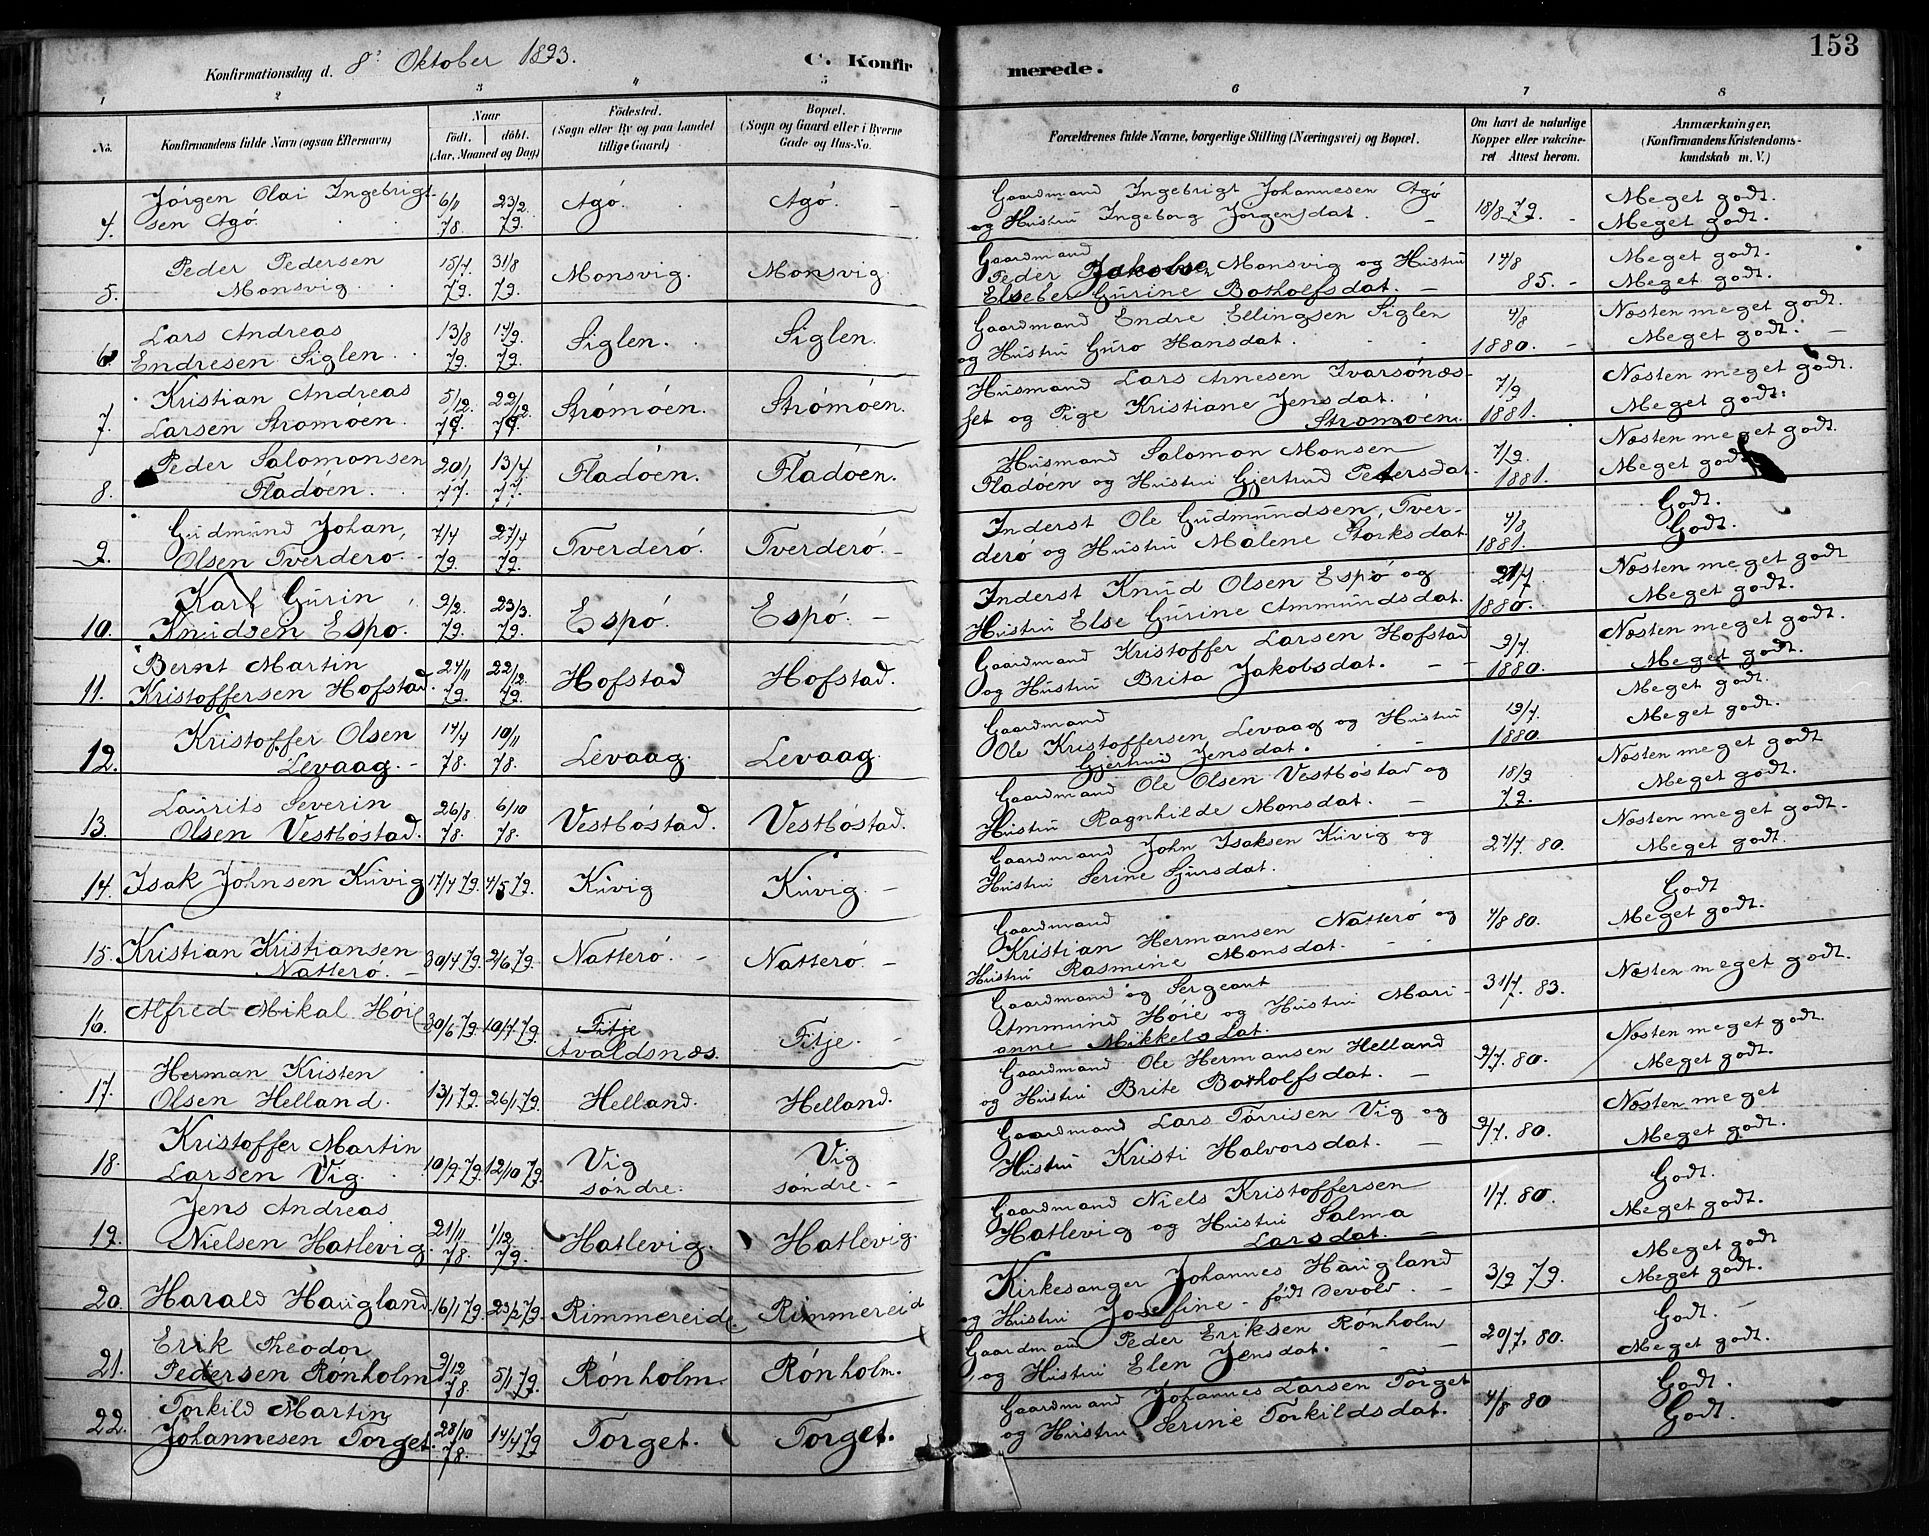 153
Konfirmationsdag d. 8' Oktober 1893.
C. Konfirmerede.
1 2 3 4 5 6 7 8
No.
Konfirmandens fulde Navn (ogsaa Efternavn)
Naar
födt. döbt.
(Aar, Maaned og Dag)
Födested.
(Sogn eller By og paa Landet
tillige Gaard)
Bopæl.
(Sogn og Gaard eller i Byerne
Gade og Hus-No.
Forældrenes fulde Navne, borgerlige Stilling (Næringsvei) og Bopæl.
Om havt de naturlige
Kopper eller vakcine-
ret Attest herom.
Anmærkninger.
(Konfirmandens Kristendoms-
kundskab m. V.)
4. Jörgen Olai Ingebrigt-
sen Agö.
6/11 78. 23/2 79. Agö. Agö.
Gaardmand Ingebrigt Johannesen Agö
og Hustru Ingeborg Jörgensdat.
18/8 79.
Meget godt.
Meget godt.
5. Peder Pedersen
Monsvig.
79. 31/8 79. Monsvig. Monsvig.
Gaardmand
Peder Jakobsen Monsvig og Hustru
Elseber Gurine Botholfsdat.
14/8 85.
Meget godt.
Meget godt.
6. Lars Andreas
Endresen Siglen.
13/8 79. 14/9 79. Siglen. Siglen.
Gaardmand Endre Ellingsen Siglen
og Hustru Guro Hansdat.
4/8 1880.
Næsten meget godt.
Meget godt.
7. Kristian Andreas
Larsen Strömöen.
5/12 22/12 Strömöen. Strömöen.
Husmand Lars Arnesen Ivarsönæs-
set og Pige Kristiane Jensdat.
Strömöen.
7/9 1881.
Næsten meget godt.
Meget godt.
8. Peder Salomonsen
Fladöen.
20/1 77. 13/4 77. Fladöen. Fladöen.
Husmand Salomon Monsen
Fladöen og Hustru Gjertrud Petersdat.
7/9 1881.
Næsten meget godt.
Meget godt.
9. Gudmund Johan
Olsen Tverderö.
7/4 79. 27/4 79. Tverderö. Tverderö.
Inderst Ole Gudmundsen Tver-
derö og Hustru Malene Störksdat.
4/8 1881.
Godt.
Godt.
10. Karl Gurin
Knudsen Espö.
9/2 79. 23/3 79. Espö. Espö.
Inderst Knud Olsen Espö og
Hustru Else Gurine Ammundsdat.
21/7 1880.
Næsten meget godt
Meget godt.
11. Bernt Martin
Kristoffersen Hofstad.
24/11 22/12 Hofstad Hofstad.
Gaardmand Kristoffer Larsen Hofstad
og Hustru Brita Jakobsdat.
9/7. 1880.
Næsten meget godt.
Meget godt.
12. Kristoffer Olsen
Levaag.
78. 10/11 78. Levaag. Levaag.
Gaardmand
Ole Kristoffersen Levaag og Hustru
Gjertrud Jensdat.
19/7. 1880.
Meget godt.
Meget godt.
13. Laurits Severin
Olsen Vestböstad.
26/8 78. 6/10 78. Vestböstad. Vestböstad.
Gaardmand Ole Olsen Vestböstad og
Hustru Ragnhilde Monsdat.
18/9 79.
Næsten meget godt
Meget godt.
14. Isak Johnsen Kuvig
17/4 79. 4/5 79. Kuvig Kuvig.
Gaardmand John Isaksen Kuvig og
Hustru Serine Sjursdat.
27/7. 80.
Næsten meget godt.
Meget godt.
15. Kristian Kristiansen
Natterö.
30/4 79. 2/6 79. Natterö. Natterö.
Gaardmand
Kristian Hermansen Natterö og
Hustru Rasmine Monsdat.
4/8 80.
Godt
Meget godt.
16. Alfred Mikal Höie
30/6 79. 10/7 79. Fitje
Avaldsnæs. Fitje.
Gaardmand og Sergeant
Ammund Höie og Hustru Mari-
anne Mikkelsdat.
31/7. 83.
Næsten meget godt.
17. Herman Kristen
Olsen Helland.
13/1 79. 26/1 79. Helland. Helland.
Gaardmand Ole Hermansen Helland
og Hustru Brite Botholfsdat.
9/7. 80.
Næsten meget godt.
Meget godt.
18. Kristoffer Martin
Larsen Vig.
10/9 79. 12/10 79. Vig
söndre. Vig
söndre.
Gaardmand Lars Törrisen Vig og
Hustru Kristi Halvorsdat.
9/7. 80.
Næsten meget
Meget godt.
19. Jens Andreas
Nielsen Hatlevig.
21/11 78. 1/12 79. Hatlevig. Hatlevig.
Gaardmand Niels Kristoffersen
Hatlevig og Hustru Salma
Larsdat.
1/7. 80.
Godt.
Meget godt.
20. Harald Haugland
16/1 79. 23/2 79. Rimmereid. Rimmereid
Kirkesanger Johannes Haugland
og Hustru Josefine födt Devold.
3/9 79.
Meget godt
Meget godt.
21. Erik Theodor
Pedersen Rönholm
9/12 78. 5/1 79. Rönholm. Rönholm.
Gaardmand Peder Eriksen Rönholm
og Hustru Elen Jensdat.
20/7. 80.
Godt.
Meget godt.
22. Torkild Martin
Johannesen Torget.
28/10 78. 14/4 79 Torget. Torget.
Gaardmand Johannes Larsen Torget
og Hustru Serine Torkildsdat.
4/8 80
Godt.
Godt.